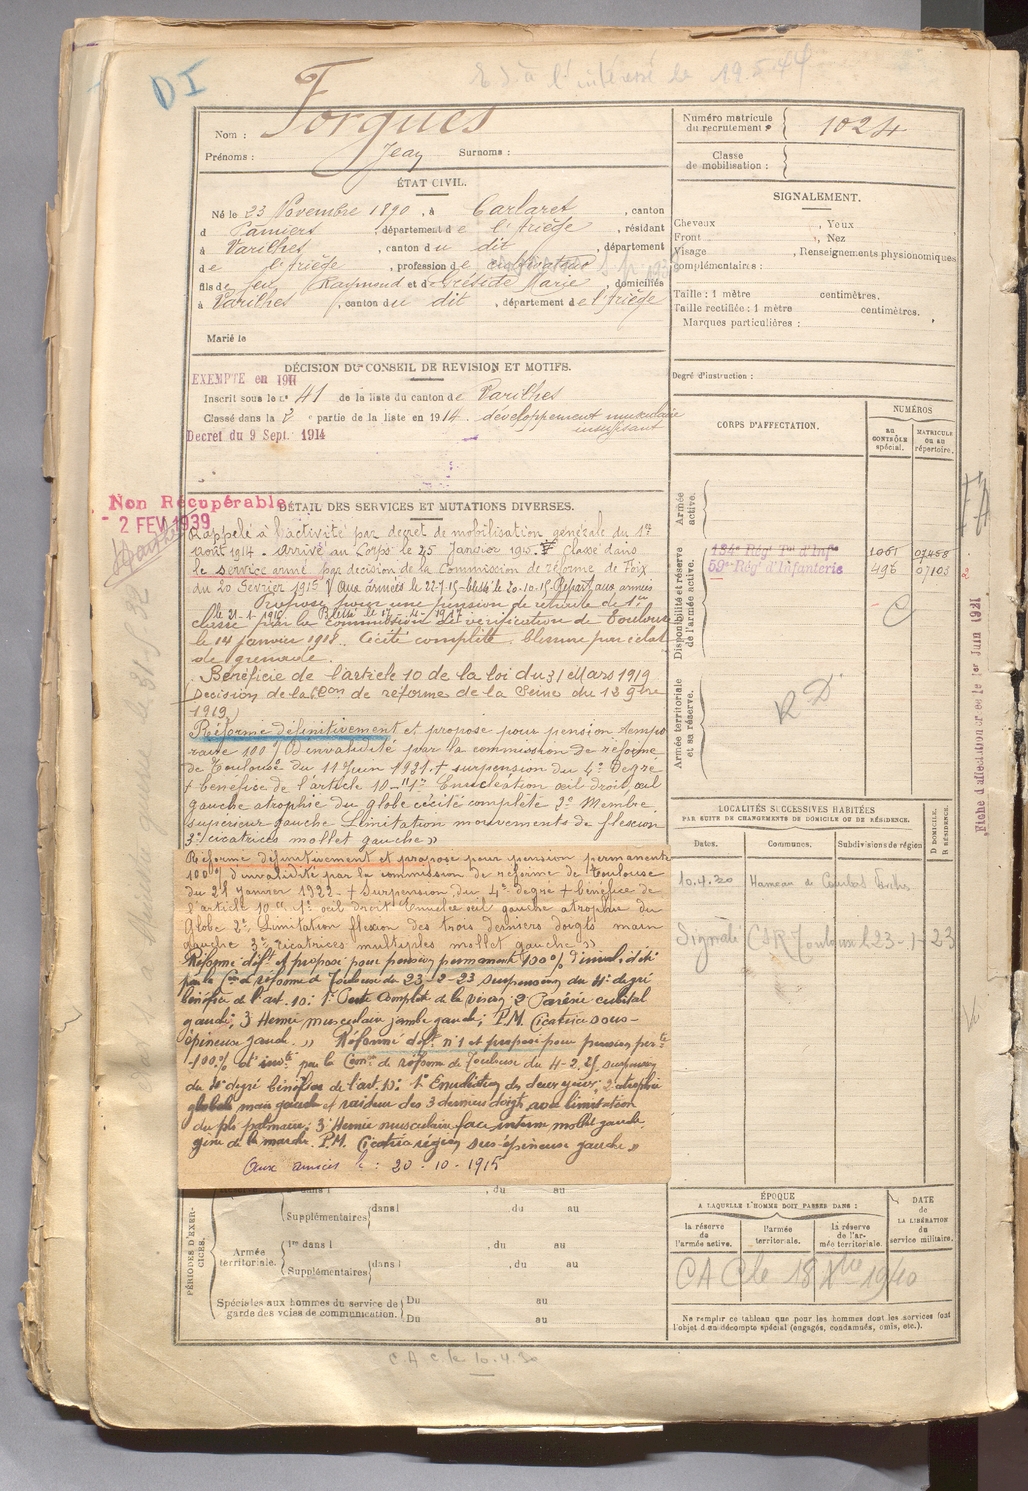 DI
ES à l'intéressé le 19
Nom : Forgues
Prénoms : Jean Surnoms :
Numéro matricule du recrutement : 1024
Classe de mobilisation :
ÉTAT CIVIL.
Né le 23 Novembre 1890, à Carlaret, canton
d Pamiers, département de l'Ariège, résidant
à Varilhes, canton du dit, département
de l'Ariège, profession de cultivateur
fils de feu Raymond et de Marie, domiciliés
à Varilhes, canton du dit, département de l'Ariège
Marié le
SIGNALEMENT.
Cheveux , Yeux
Front , Nez
Visage , Renseignements physionomiques
complémentaires :
Taille : 1 mètre centimètres.
Taille rectifiée : 1 mètre centimètres.
Marques particulières :
Degré d'instruction :
DÉCISION DU CONSEIL DE REVISION ET MOTIFS.
EXEMPTÉ en 1911
Inscrit sous le n° 41 de la liste du canton de Varilhes
Classé dans la 2e partie de la liste en 1914. développement musculaire
insuffisant
Decret du 9 Sept. 1914
Non Récupérable
- 2 FEV 1939
DÉTAIL DES SERVICES ET MUTATIONS DIVERSES.
Rappelé à l'activité par decret de mobilisation générale du 1er
Août 1914 - Arrivé au Corps le 25 Janvier 1915. Classé dans
le service armé par décision de la Commission de réforme de Foix
du 20 Février 1915 Aux armées le 22-7-15 - blessé le 20-10-15 Repart aux armées
le 21-1-1916 Blessé le 17-4-1917
Proposé pour une pension de retraite de 1ère
classe par la commission de vérification de Toulouse
le 14 janvier 1918. Cécité complète. blessure par éclat
de grenade.
Bénéficie de l'article 10 de la loi du 31 Mars 1919
Décision de la Con de réforme de la Seine du 12 9bre
1919)
Réformé définitivement et proposé pour pension tempo
raire 100% d'invalidité par la commission de réforme
de Toulouse du 11 Juin 1921 + suspension du 4e Degré
+ bénéfice de l'article 10 - "1° Enucléation œil droit, œil
gauche atrophie du globe cécité complète 2° Membre
supérieur gauche Limitation mouvements de flexion
3° cicatrices mollet gauche"
Réformé définitivement et proposé pour pension permanente
100% d'invalidité par la commission de réforme de Toulouse
du 28 Janvier 1922 - + Suspension du 4e degré + bénéfice de
l'article 10 "1° œil droit Enuclée œil gauche atrophie du
Globe 2° Limitation flexion des trois derniers doigts main
gauche 3° cicatrices multiples mollet gauche"
Réformé déft et proposé pour pension permanente 100% d'invalidité
par la Con de réforme de Toulouse du 23-2-23 suspension du 4e degré
bénéfice de l'art. 10 : 1° Perte complète de la vision; 2° Parésie cubital
gauche; 3 Hernie musculaire jambe gauche; P.M. Cicatrice sous-
épineuse gauche." Réformé déft n°1 et proposé pour pension perte
100% d'invté par la Con de réforme de Toulouse du 4-2-25 suspension
du 4e degré bénéfice de l'art. 10 : 1° Enucléation des deux yeux; 2° atrophie
globale main gauche et raideur des 3 derniers doigts avec limitation
du pli palmaire; 3° Hernie musculaire face interne mollet gauche
gêne de la marche. P.M. Cicatrice région sous-épineuse gauche"
Aux armées le : 20-10-1915
CORPS D'AFFECTATION.
NUMÉROS
AU CONTRÔLE spécial.
MATRICULE OU AU répertoire.
Armée active.
Disponibilité et réserve de l'armée active.
134e Rég. Tal d'Infie 1061 07458
59e Rég. d'Infanterie 496 07103
C
Armée territoriale et sa réserve.
RD
Fiche d'affectation créée le 1er Juin 1921
LOCALITÉS SUCCESSIVES HABITÉES
PAR SUITE DE CHANGEMENTS DE DOMICILE OU DE RÉSIDENCE.
Dates. Communes. Subdivisions de région D DOMICILE. R RÉSIDENCE.
10.4.30 Hameau de
Signalé CSR Toulouse l 23-1-23
PÉRIODES D'EXERCICES.
dans l , du au
Supplémentaires dans l , du au
Armée territoriale.
1re dans l , du au
Supplémentaires dans l , du au
Spéciales aux hommes du service de garde des voies de communication. Du au
Du au
ÉPOQUE
A LAQUELLE L'HOMME DOIT PASSER DANS :
la réserve de l'armée active.
l'armée territoriale.
la réserve de l'armée territoriale.
DATE de LA LIBÉRATION du service militaire.
CAC le 18 Xbre 1940
Ne remplir ce tableau que pour les hommes dont les services font
l'objet d'un décompte spécial (engagés, condamnés, omis, etc.).
C.A.C. le 10.4.30